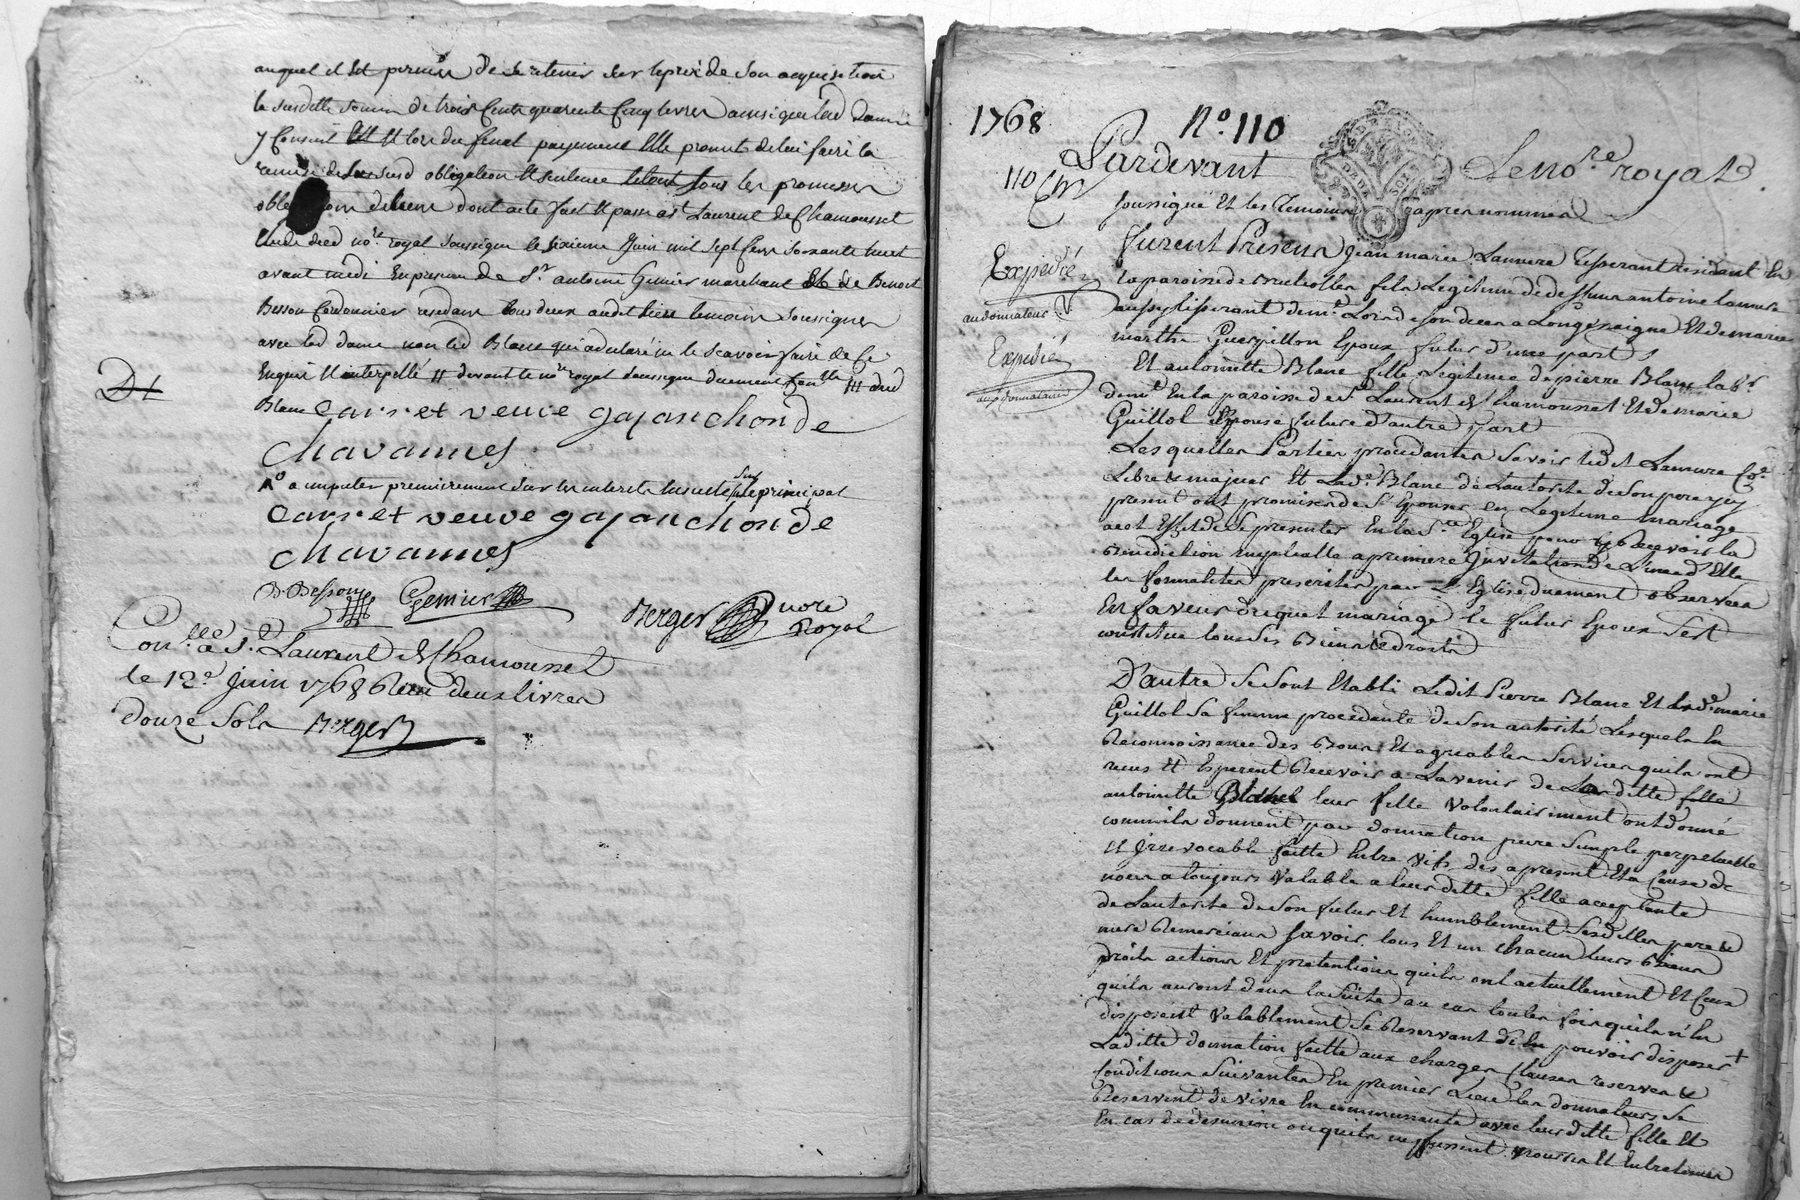 auquel il est permis de se retenir sur le prix de son acquisition
la susditte somme de trois Cents quarente Cinq livres ainsi que lad dame
y Consent et lors du final payement Elle promet de lui faire la
remise de susd obligation et sentence le tout sous les promesses
obligation de biens dont acte fait et passé a st Laurent de Chamousset
Etude dud no.re royal soussigné le sixieme Juin mil sept Cens soixante huit
avant midi En presence de s.r antoine Gemier marchant et de Benoit
Besson Cordonnier residans tous deux audit lieu temoins soussignes
avec lad dame non led Blanc qui a declaré ne le scavoir faire de Ce
Enquis et interpellé // devant le no.re royal soussigné duement /// dud
Blanc Cars et veuve gajanchon de
Chavannes
a imputer premierement sur les interets ensuite sur le principal
Cars et veuve gajanchon de
chavannes
B Besson Gemier Berger no.re
Royal
Con.lle a S.t Laurent de Chamousset
le 12.e Juin 1768 Reçu deux livres
douze sols Berger
1768 N.o 110
110 Pardevant Le no.re royal
soussigné Et les Temoins cy apres nommés
furent Presens Jean marie Lamure Tisserant residant En
Expedié
au donnateur
la paroisse de fils Legitime de deffunt antoine Lamure
aussy tisserant dem.t Lors de son deces a Longessaigne Et de marie
Expedié
aux donnataires
marthe Guerpillon Epoux futur d'une part
Et antoinette Blanc fille Legitime de pierre Blanc lab.r
dem.t En la paroisse de S.t Laurent de Chamousset Et de marie
Guillot Epouse future d'autre part
Lesquelles Parties procedantes Savoir led Lamure Co.e
Libre & majeur Et Lad.e Blanc de L'autorité de son pere icy
present ont promis de s'Epouser en Legitime mariage
a cet Effet de se presenter En la S.te Eglise pour y Recevoir la
Benediction nuptialle a premiere Invitation de L'une d'Elle
les formalités prescrites par L'Eglise duement observées
En faveur duquel mariage le futur Epoux s'est
constitué tous ses Biens & droits
D'autre se sont Etabli Ledit Pierre Blanc Et lad.e marie
Guillot sa femme procedante de son autorité Lesquels En
Reconnoissance des Bons Et agreables services qu'ils ont
recus Et Esperent Recevoir a L'avenir de Laditte fille
antoinette Blanc leur fille volontairement ont donné
comm'ils donnent par donnation pure simple perpetuelle
Et Irrevocable faitte Entre vifs des a present Et a Cause de
noces a toujours valable a leurditte fille acceptante
de L'autorité de son futur Et humblement sesdittes pere &
mere Remerciant savoir tous Et un chacun leurs Biens
droits actions Et pretentions qu'ils ont actuellement Et Ceux
qu'ils auront dans la suite au cas toutes fois qu'ils n'En
disposent valablement se Reservant d'En pouvoir disposer +
Laditte donnation faitte aux charges Clauses reserves &
Conditions suivantes En premier Lieu les donnateurs se
Reservent de vivre En communauté avec leurditte fille Et
En cas de desunion ou qu'ils ne fussent nourris Et Entretenus